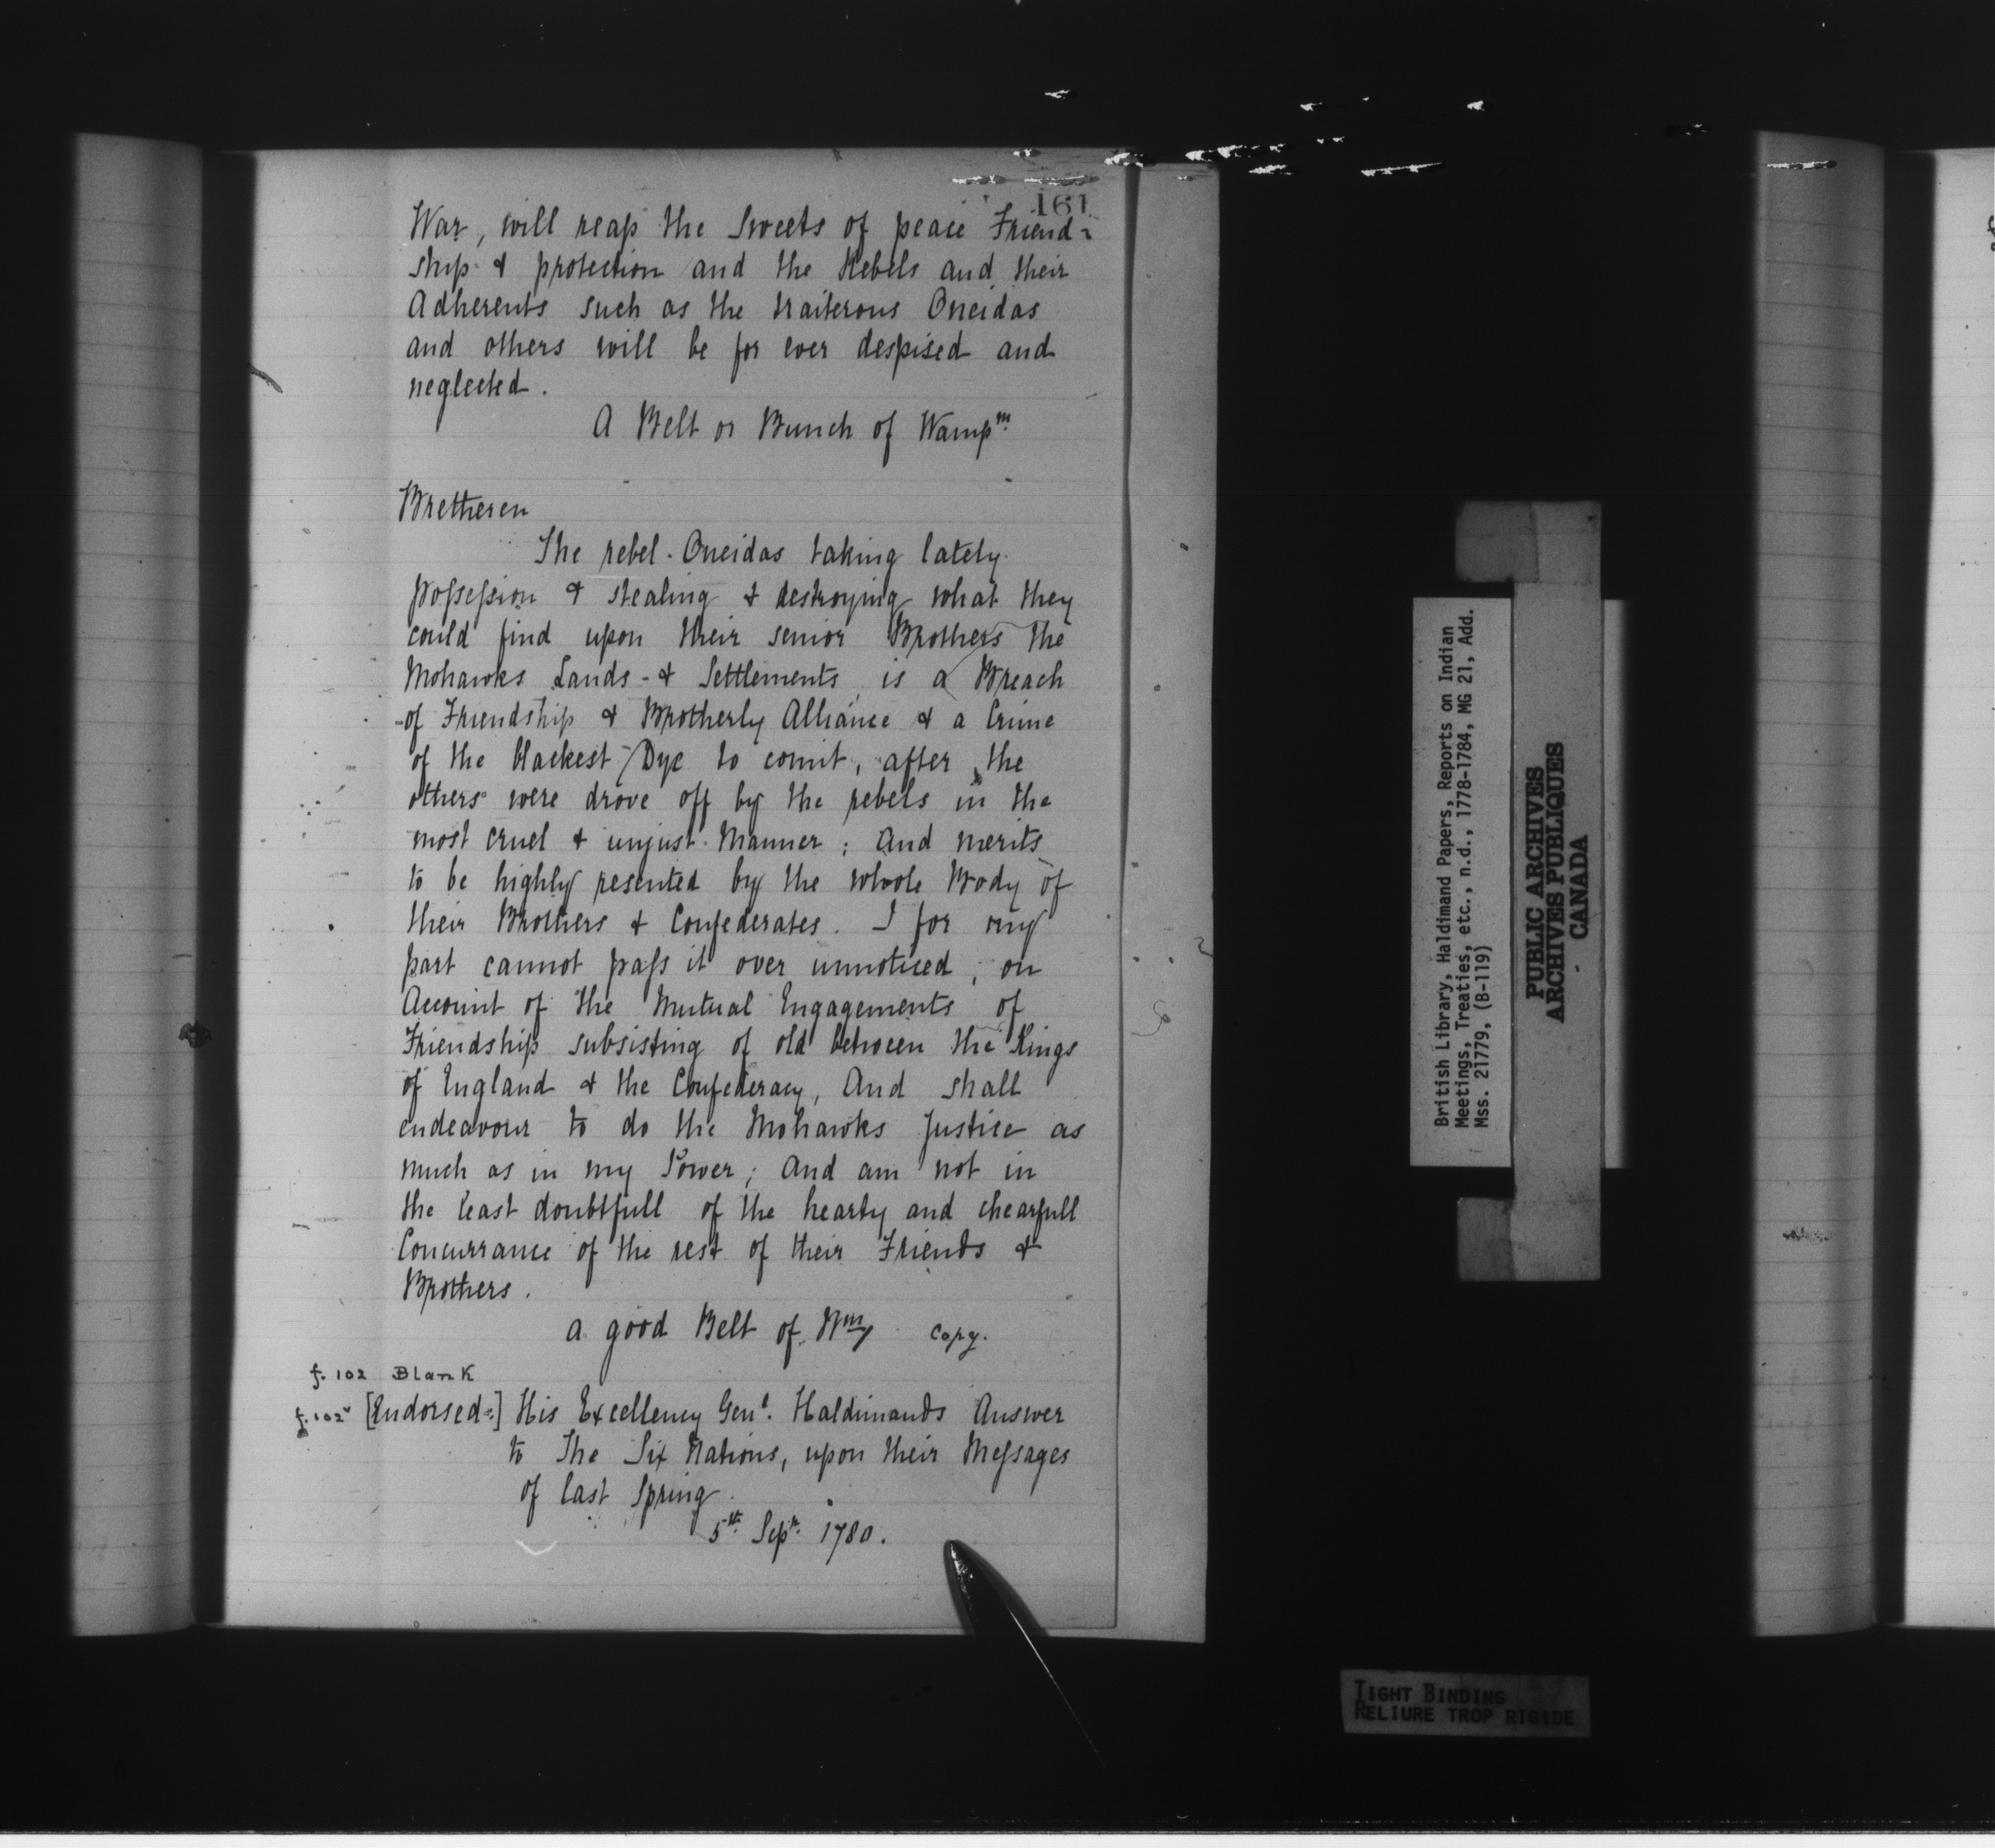 161
War, will reap the Sweets of peace Friend-
ship & protection and the Rebels and their
Adherents such as the traiterous Oneidas
and others will be for ever despised and
neglected.
A Belt or Bunch of Wampm
Bretheren
The rebel Oneidas taking lately
possession & stealing & destroying what they
could find upon their senior Brothers the
Mohawks Lands & Settlements is a Breach
of Friendship & Brotherly Alliance & a Crime
of the blackest Dye to comit, after the
others were drove off by the rebels in the
most cruel & unjust Manner; And merits
to be highly resented by the whole Body of
their Brothers & Confederates. I for my
part cannot pass it over unnoticed, on
Account of the Mutual Engagements of
Friendship subsisting of old between the Kings
of England & the Confederacy, And shall
endeavour to do the Mohawks Justice as
much as in my Power; And am not in
the least doubtfull of the hearty and chearfull
Concurrance of the rest of their Friends &
Brothers.
a good Belt of Wm copy.
f. 102 Blank
f. 102v [Endorsed:] His Excellency Genl. Haldimands Answer
to The Six Nations, upon their Messages
of last Spring.
5th Sepr. 1780.
British Library, Haldimand Papers, Reports on Indian
Meetings, Treaties, etc., n.d., 1778-1784, MG 21, Add.
Mss. 21779, (B-119)
PUBLIC ARCHIVES
ARCHIVES PUBLIQUES
CANADA
TIGHT BINDING
RELIURE TROP RIGIDE